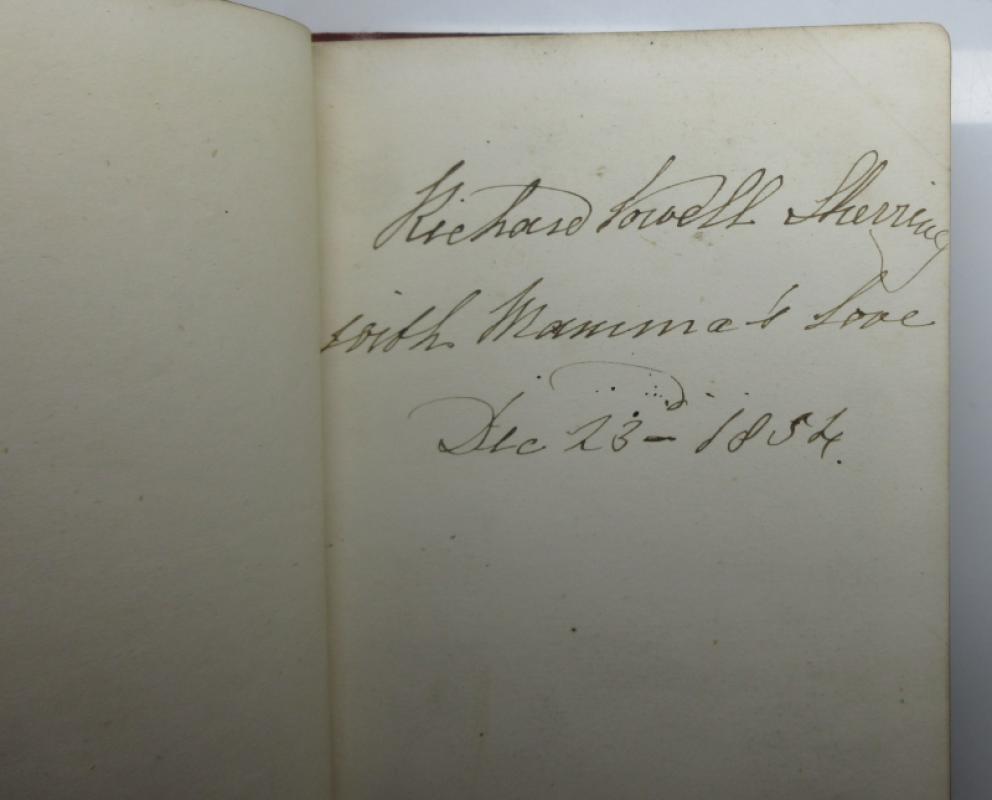 Richard Lowell Sherring
with Mamma's love
Dec 23rd 1854.